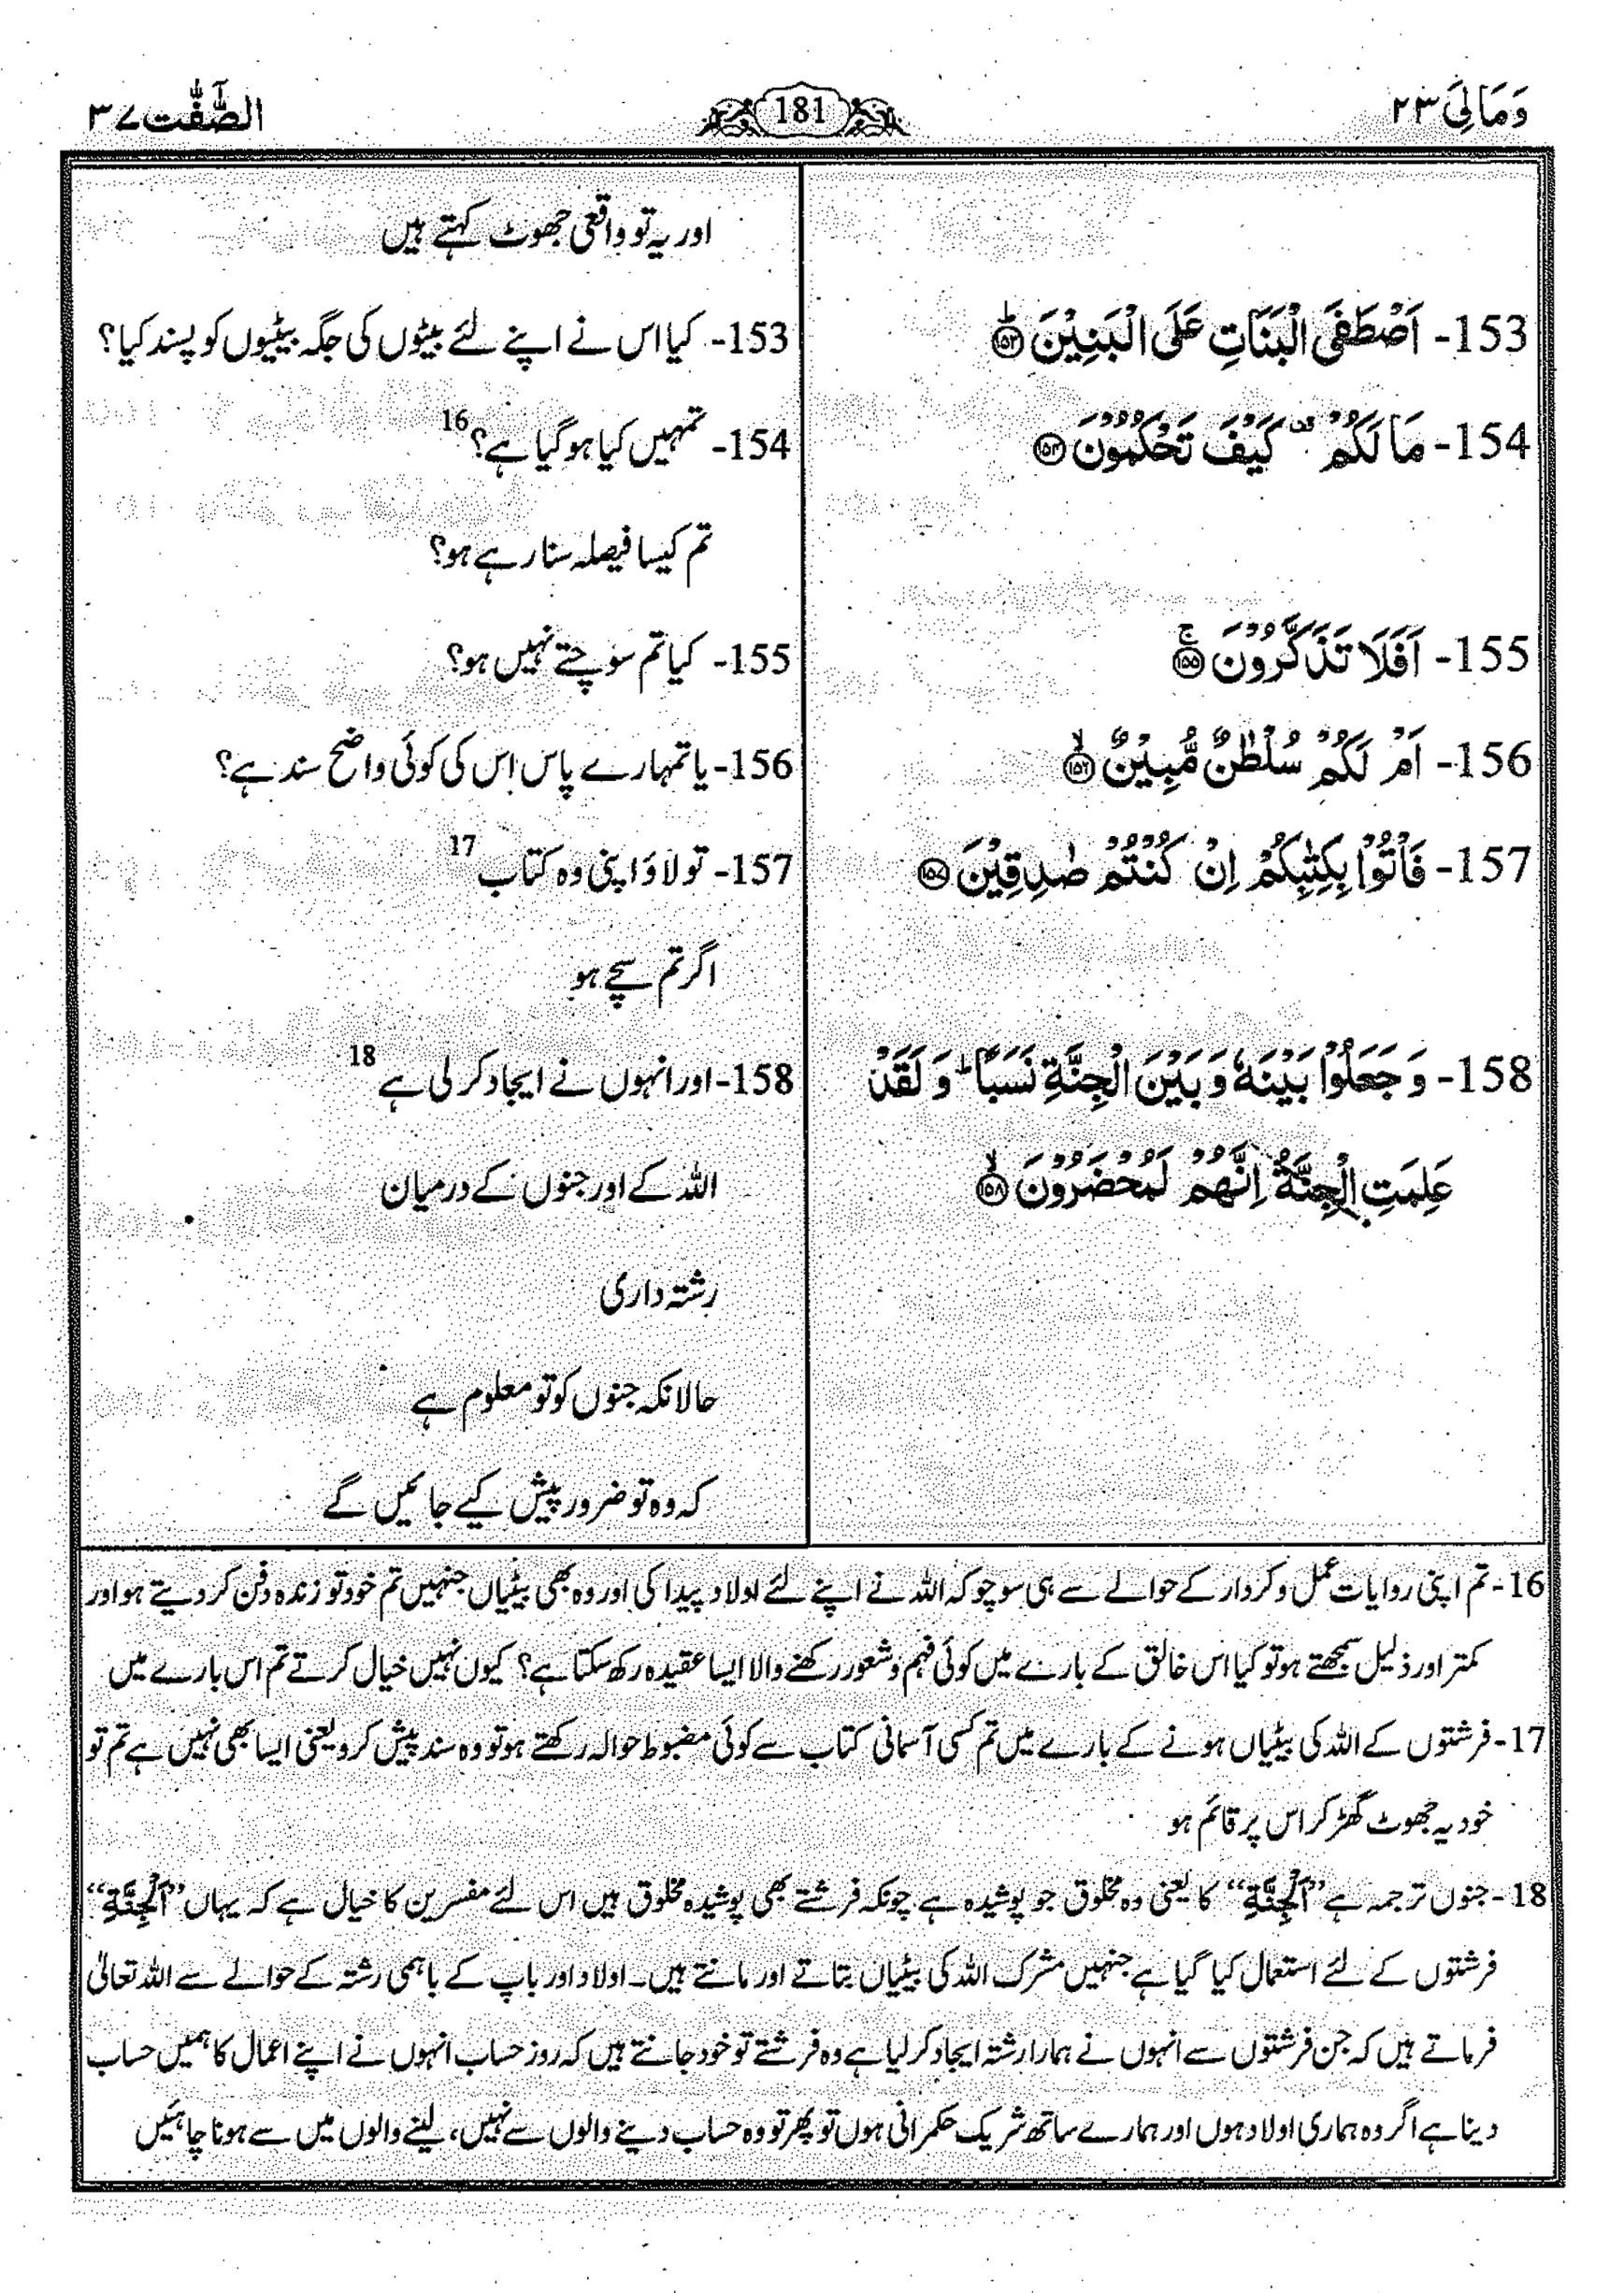 وَمَالِیَ ۲۳
181
الصّٰٓفّٰت ۳۷
اور یہ تو واقعی جھوٹ کہتے ہیں
153- اَصْطَفَی الْبَنَاتِ عَلَی الْبَنِیْنَ ؕ﴿۱۵۳﴾
153- کیا اس نے اپنے لئے بیٹوں کی جگہ بیٹیوں کو پسند کیا؟
154- مَا لَکُمْ ۟ کَیْفَ تَحْکُمُوْنَ ﴿۱۵۴﴾
154- تمہیں کیا ہو گیا ہے؟ 16
تم کیسا فیصلہ سنا رہے ہو؟
155- اَفَلَا تَذَکَّرُوْنَ ۚ﴿۱۵۵﴾
155- کیا تم سوچتے نہیں ہو؟
156- اَمْ لَکُمْ سُلْطٰنٌ مُّبِیْنٌ ۙ﴿۱۵۶﴾
156- یا تمہارے پاس اس کی کوئی واضح سند ہے؟
157- فَاْتُوْا بِکِتٰبِکُمْ اِنْ کُنْتُمْ صٰدِقِیْنَ ﴿۱۵۷﴾
157- تو لاؤ اپنی وہ کتاب 17
اگر تم سچے ہو
158- وَ جَعَلُوْا بَیْنَہٗ وَ بَیْنَ الْجِنَّۃِ نَسَبًا ؕ وَ لَقَدْ
عَلِمَتِ الْجِنَّۃُ اِنَّہُمْ لَمُحْضَرُوْنَ ۙ﴿۱۵۸﴾
158- اور انہوں نے ایجاد کر لی ہے 18
اللہ کے اور جنوں کے درمیان
رشتہ داری
حالانکہ جنوں کو تو معلوم ہے
کہ وہ تو ضرور پیش کیے جائیں گے
16- تم اپنی روایات عمل و کردار کے حوالے سے ہی سوچو کہ اللہ نے اپنے لئے اولاد پیدا کی اور وہ بھی بیٹیاں جنہیں تم خود تو زندہ دفن کر دیتے ہو اور
کمتر اور ذلیل سمجھتے ہو تو کیا اس خالق کے بارے میں کوئی فہم و شعور رکھنے والا ایسا عقیدہ رکھ سکتا ہے؟ کیوں نہیں خیال کرتے تم اس بارے میں
17- فرشتوں کے اللہ کی بیٹیاں ہونے کے بارے میں تم کسی آسمانی کتاب سے کوئی مضبوط حوالہ رکھتے ہو تو وہ سند پیش کرو یعنی ایسا بھی نہیں ہے تم تو
خود یہ جھوٹ گھڑ کر اس پر قائم ہو
18- جنوں ترجمہ ہے ”اَلْجِنَّۃِ“ کا یعنی وہ مخلوق جو پوشیدہ ہے چونکہ فرشتے بھی پوشیدہ مخلوق ہیں اس لئے مفسرین کا خیال ہے کہ یہاں ”اَلْجِنَّۃِ“
فرشتوں کے لئے استعمال کیا گیا ہے جنہیں مشرک اللہ کی بیٹیاں بتاتے اور مانتے ہیں۔ اولاد اور باپ کے باہمی رشتہ کے حوالے سے اللہ تعالیٰ
فرماتے ہیں کہ جن فرشتوں سے انہوں نے ہمارا رشتہ ایجاد کر لیا ہے وہ فرشتے تو خود جانتے ہیں کہ روز حساب انہوں نے اپنے اعمال کا ہمیں حساب
دینا ہے اگر وہ ہماری اولاد ہوں اور ہمارے ساتھ شریک حکمرانی ہوں تو پھر تو وہ حساب دینے والوں سے نہیں، لینے والوں میں سے ہونا چاہئیں